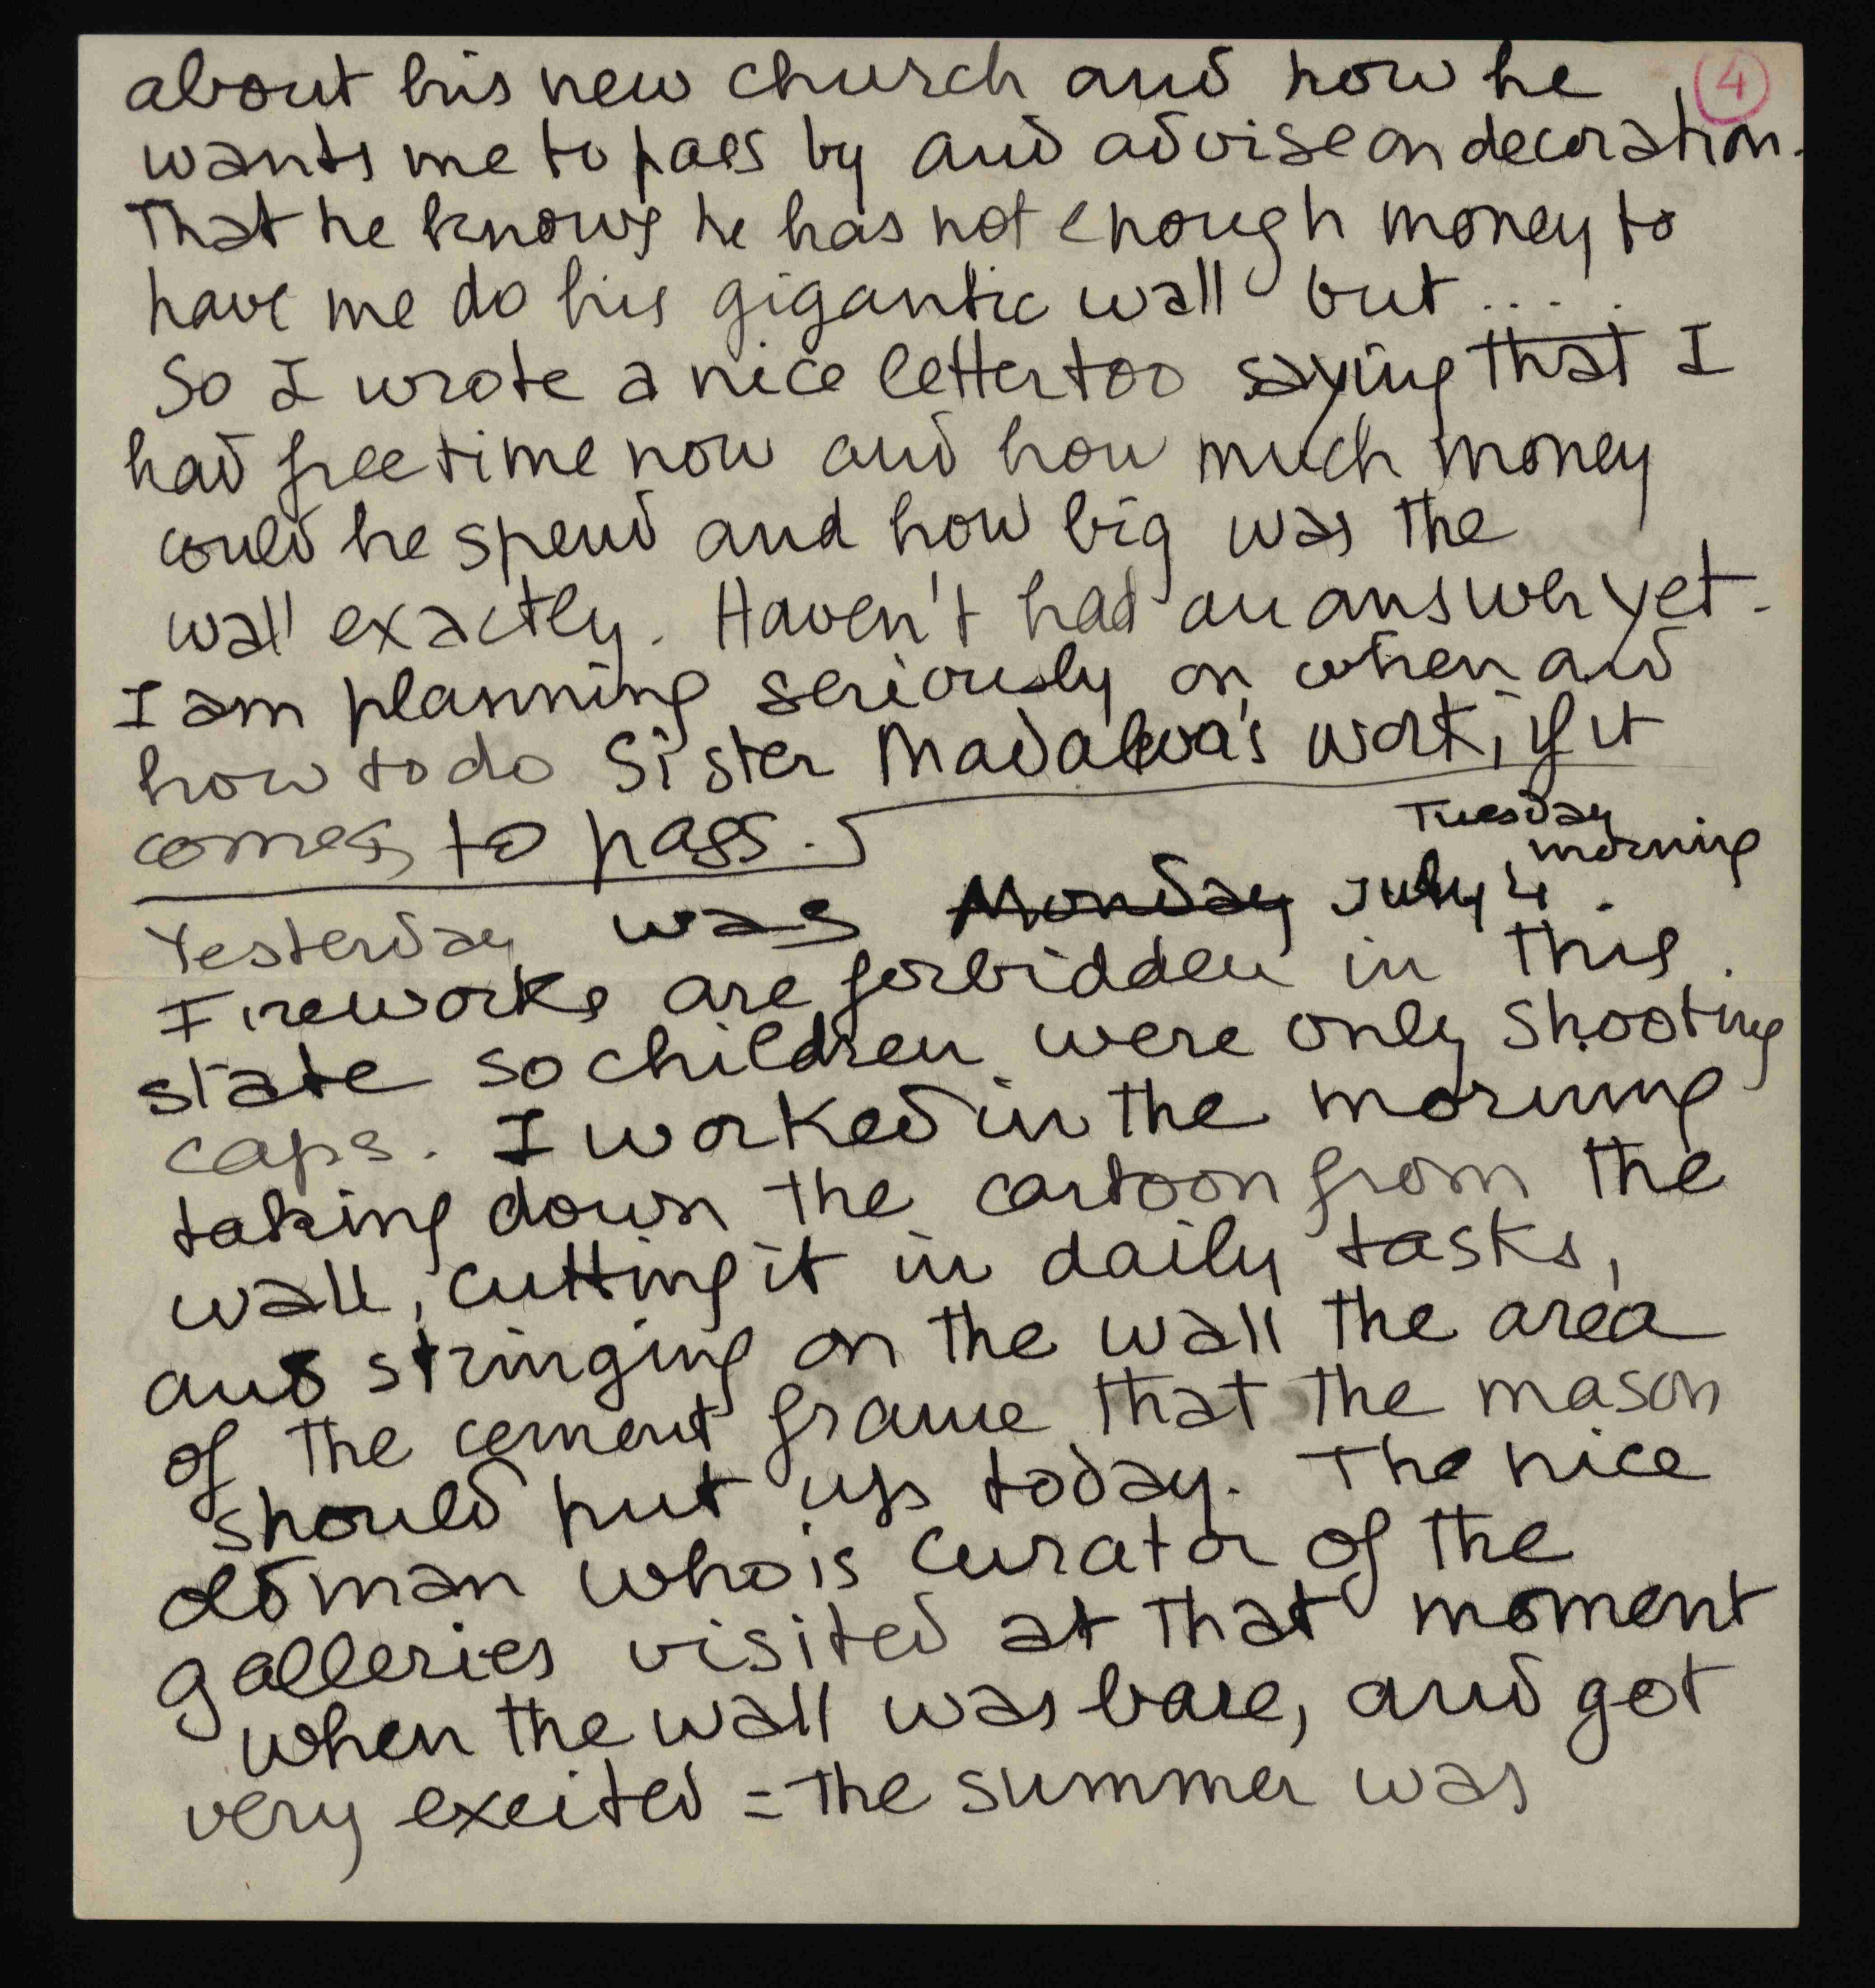 about his new church and how he ④
wants me to pass by and advise on decoration.
That he knows he has not enough money to
have me do his gigantic wall but....
So I wrote a nice letter too saying that I
had free time now and how much money
could he spend and how big was the
wall exactly. Haven't had an answer yet.
I am planning seriously on when and
how to do Sister Madaleva's work, if it
comes to pass.
Tuesday
morning
Yesterday was Monday July 4.
Fireworks are forbidden in this
state so children were only shooting
caps. I worked in the morning
taking down the cartoon from the
wall, cutting it in daily tasks,
and stringing on the wall the area
of the cement frame that the mason
should put up today. The nice
old man who is curator of the
galleries visited at that moment
when the wall was bare, and got
very excited = the summer was